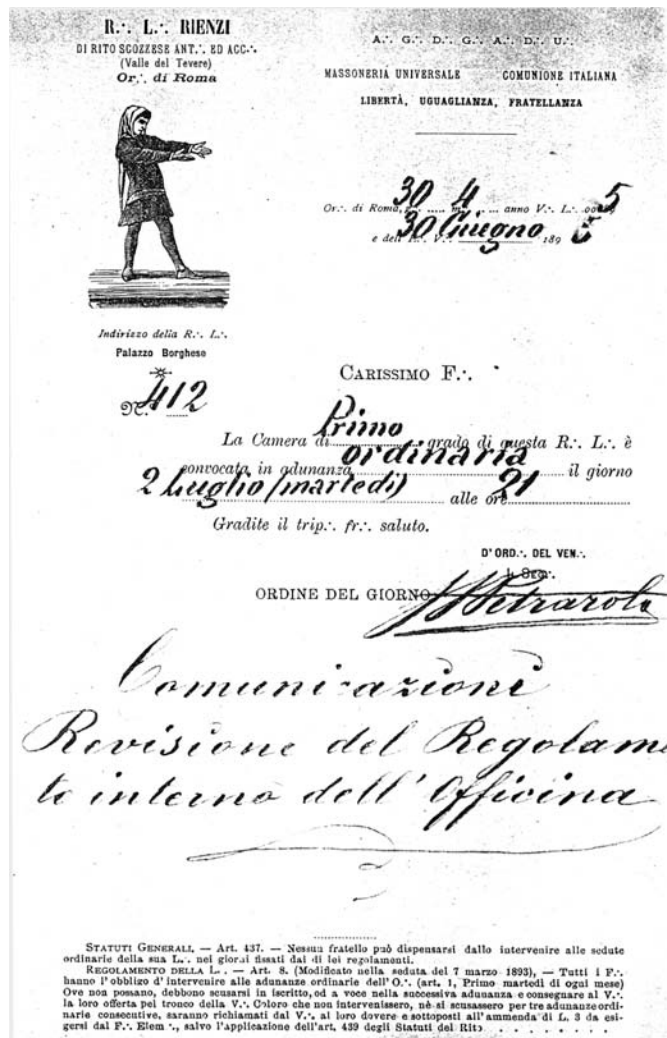 R∴ L∴ RIENZI
DI RITO SCOZZESE ANT∴ ED ACC∴
(Valle del Tevere)
Or∴ di Roma
A∴ G∴ D∴ G∴ A∴ D∴ U∴
MASSONERIA UNIVERSALE COMUNIONE ITALIANA
LIBERTÀ, UGUAGLIANZA, FRATELLANZA
Or∴ di Roma, 30 m. 4 anno V∴ L∴ 5
e dell' E∴ V∴ 30 Giugno 1895
Indirizzo della R∴ L∴
Palazzo Borghese
N. 412
CARISSIMO F∴
La Camera di Primo grado di questa R∴ L∴ è
convocata in adunanza ordinaria il giorno
2 Luglio (martedì) alle ore 21
Gradite il trip∴ fr∴ saluto.
D'ORD∴ DEL VEN∴
Il Seg∴
ORDINE DEL GIORNO
Petrarola
Comunicazioni
Revisione del Regolame
to interno dell'Officina
STATUTI GENERALI. — Art. 437. — Nessun fratello può dispensarsi dallo intervenire alle sedute
ordinarie della sua L∴ nei giorni fissati dai di lei regolamenti.
REGOLAMENTO DELLA L∴ — Art. 8. (Modificato nella seduta del 7 marzo 1893), — Tutti i F∴
hanno l'obbligo d'intervenire alle adunanze ordinarie dell'O∴ (art. 1, Primo martedì di ogni mese)
Ove non possano, debbono scusarsi in iscritto, od a voce nella successiva adunanza e consegnare al V∴
la loro offerta pel tronco della V∴ Coloro che non intervenissero, nè si scusassero per tre adunanze ordi-
narie consecutive, saranno richiamati dal V∴ al loro dovere e sottoposti all'ammenda di L. 3 da esi-
gersi dal F∴ Elem∴, salvo l'applicazione dell'art. 439 degli Statuti del Rito